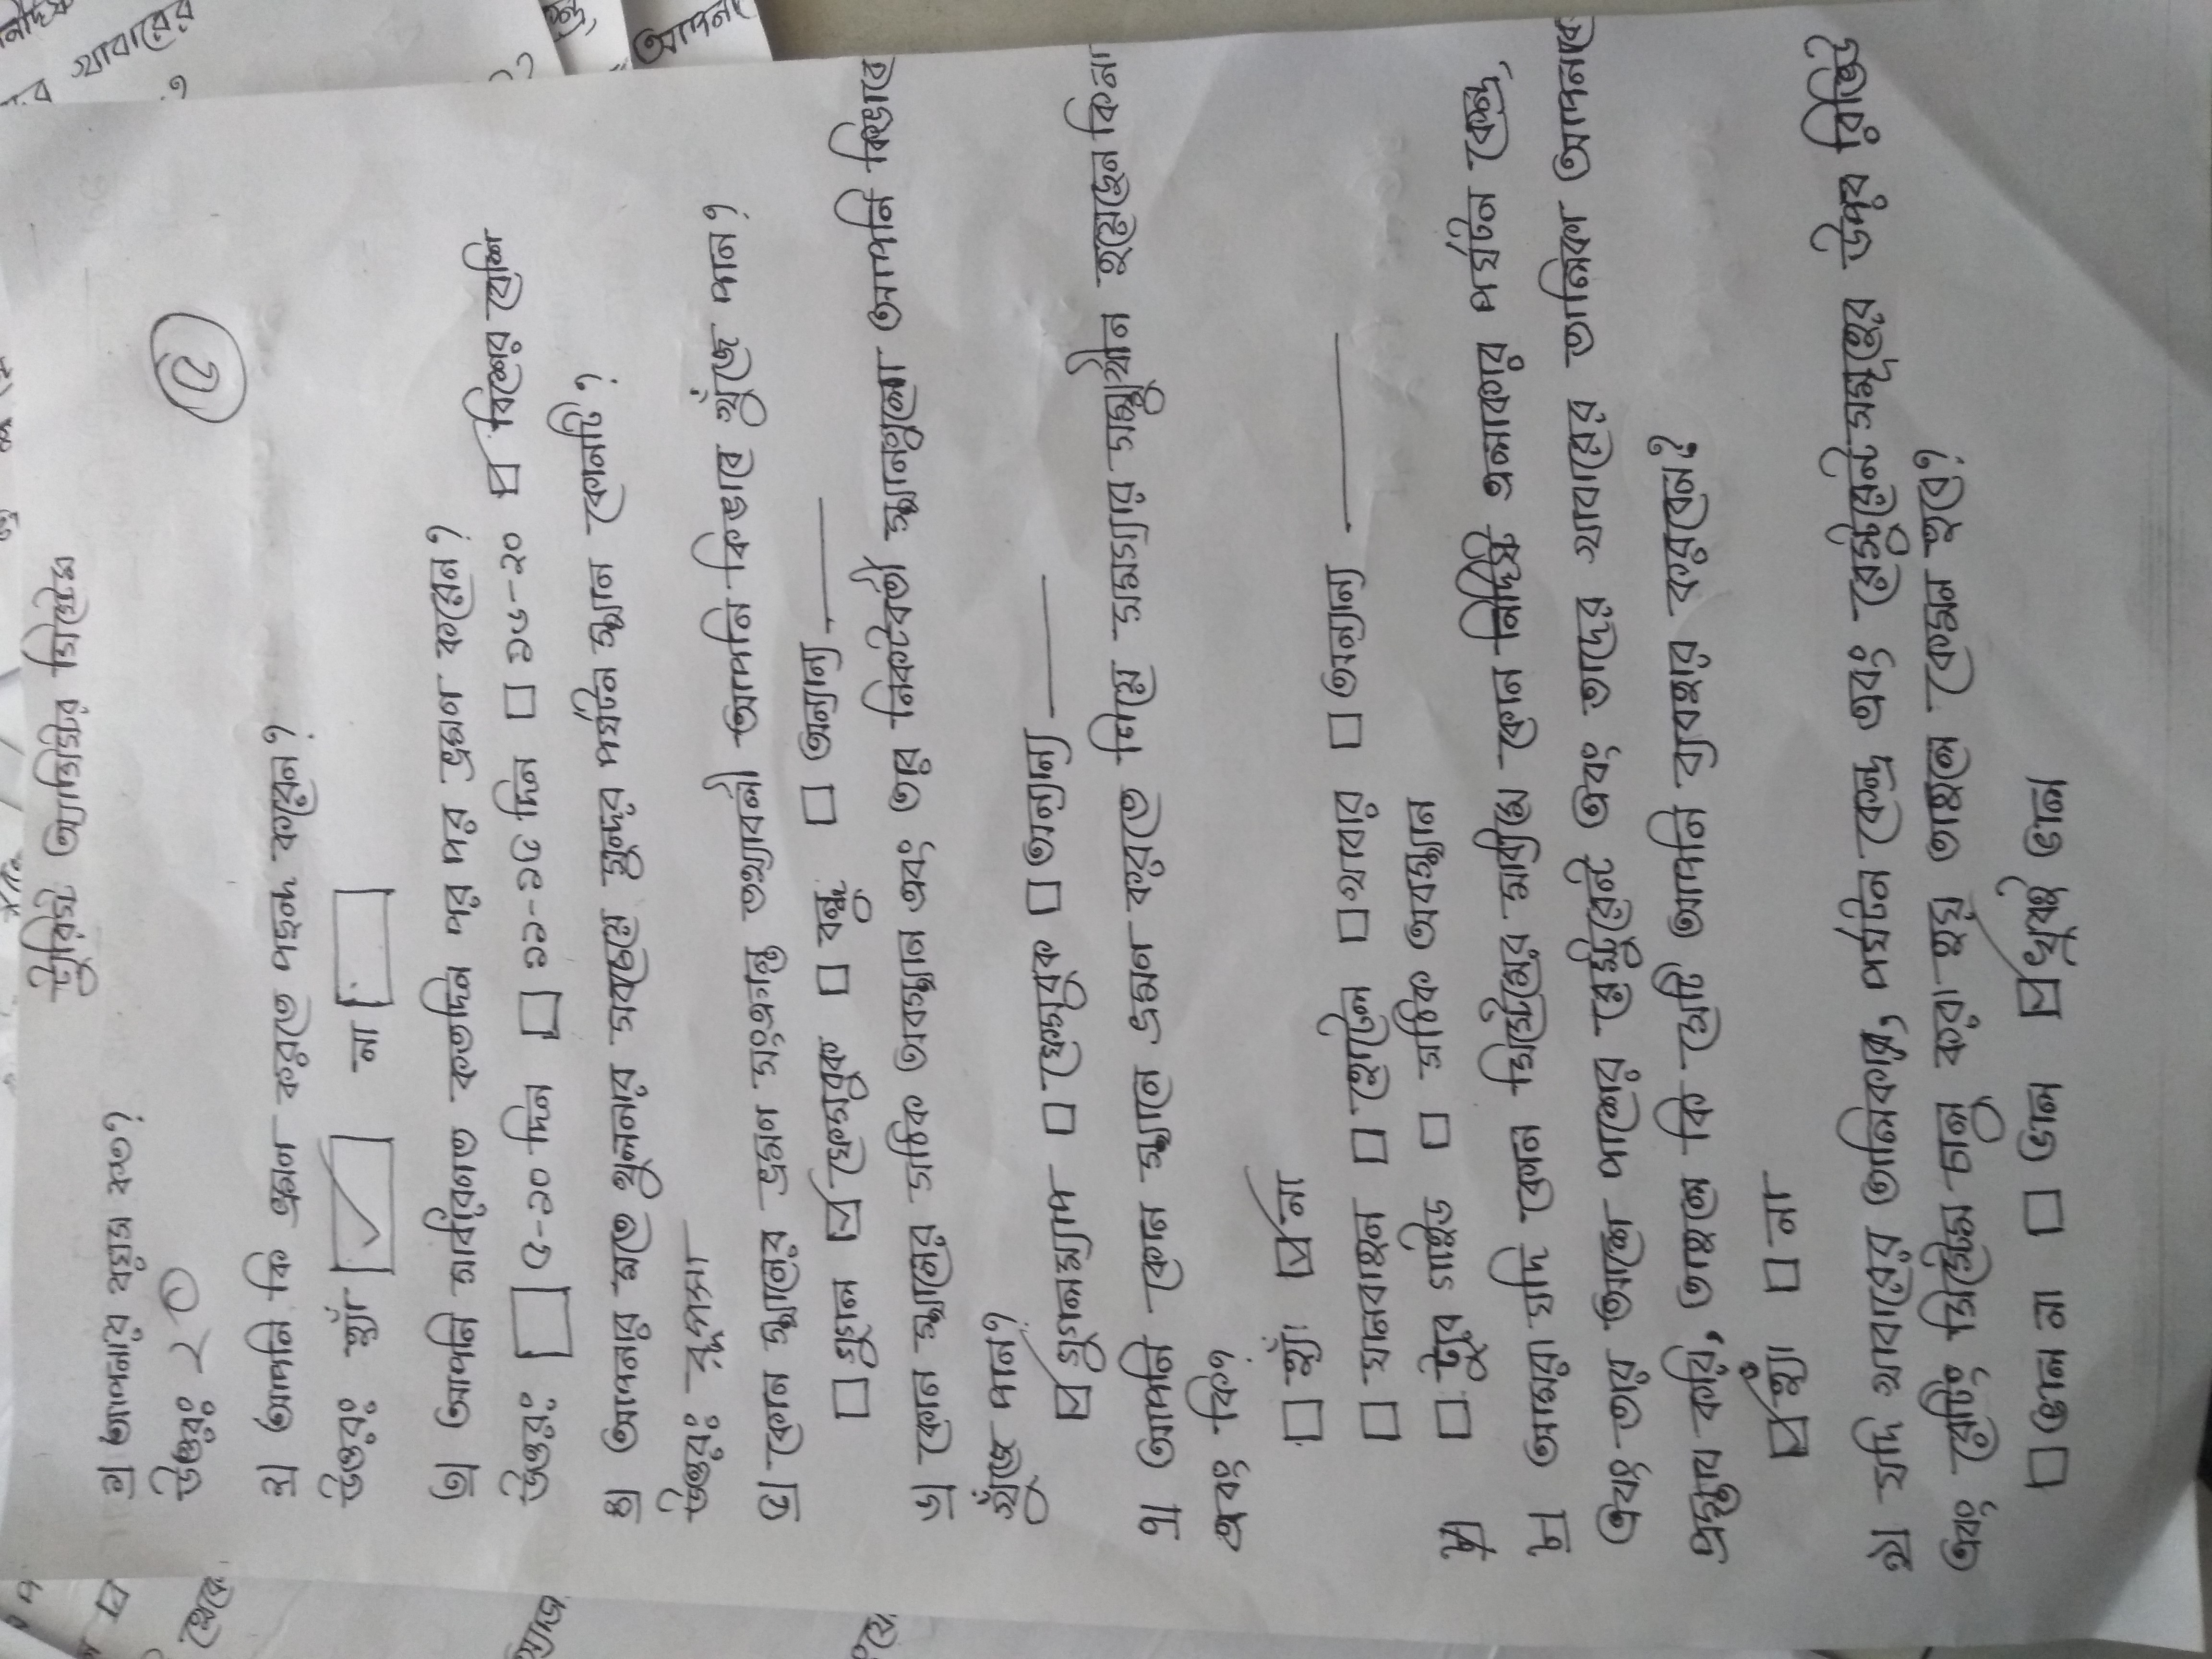 টুরিস্ট অ্যাডিক্টির সিস্টেম
১। আপনার বয়স কত?
উত্তরঃ ২০
২। আপনি কি ভ্রমণ করতে পছন্দ করেন?
উত্তরঃ হ্যাঁ না
৩। আপনি সাধারণত কতদিন পর পর ভ্রমণ করেন?
উত্তরঃ ৫-১০ দিন ১১-১৫ দিন ১৬-২০ বিশের বেশি
৪। আপনার মতে খুলনার সবচেয়ে সুন্দর পর্যটন স্থান কোনটি?
উত্তরঃ রূপসা
৫। কোন স্থানের ভ্রমণ সংক্রান্ত তথ্যাবলী আপনি কিভাবে খুঁজে পান?
গুগল ফেসবুক বন্ধু অন্যান্য
৬। কোন স্থানের সঠিক অবস্থান এবং তার নিকটবর্তী স্থানগুলো আপনি কিভাবে
খুঁজে পান?
গুগলম্যাপ ফেসবুক অন্যান্য
৭। আপনি কোন স্থানে ভ্রমণ করতে গিয়ে সমস্যার সম্মুখীন হয়েছেন কিনা
এবং কি?
হ্যাঁ না
যানবাহন হোটেল খাবার অন্যান্য
টুর গাইড সঠিক অবস্থান
৮। আমরা যদি কোন সিস্টেমের মাধ্যমে কোন নির্দিষ্ট এলাকার পর্যটন কেন্দ্র,
এবং তার আশে পাশের রেস্টুরেন্ট এবং তাদের খাবারের তালিকা আপনাকে
প্রস্তাব করি, তাহলে কি সেটি আপনি ব্যবহার করবেন?
হ্যাঁ না
৯। যদি খাবারের তালিকায়, পর্যটন কেন্দ্র এবং রেস্টুরেন্ট সমূহের উপর রিভিউ
এবং রেটিং সিস্টেম চালু করা হয় তাহলে কেমন হবে?
ভাল না ভাল খুবই ভাল
খাবারের